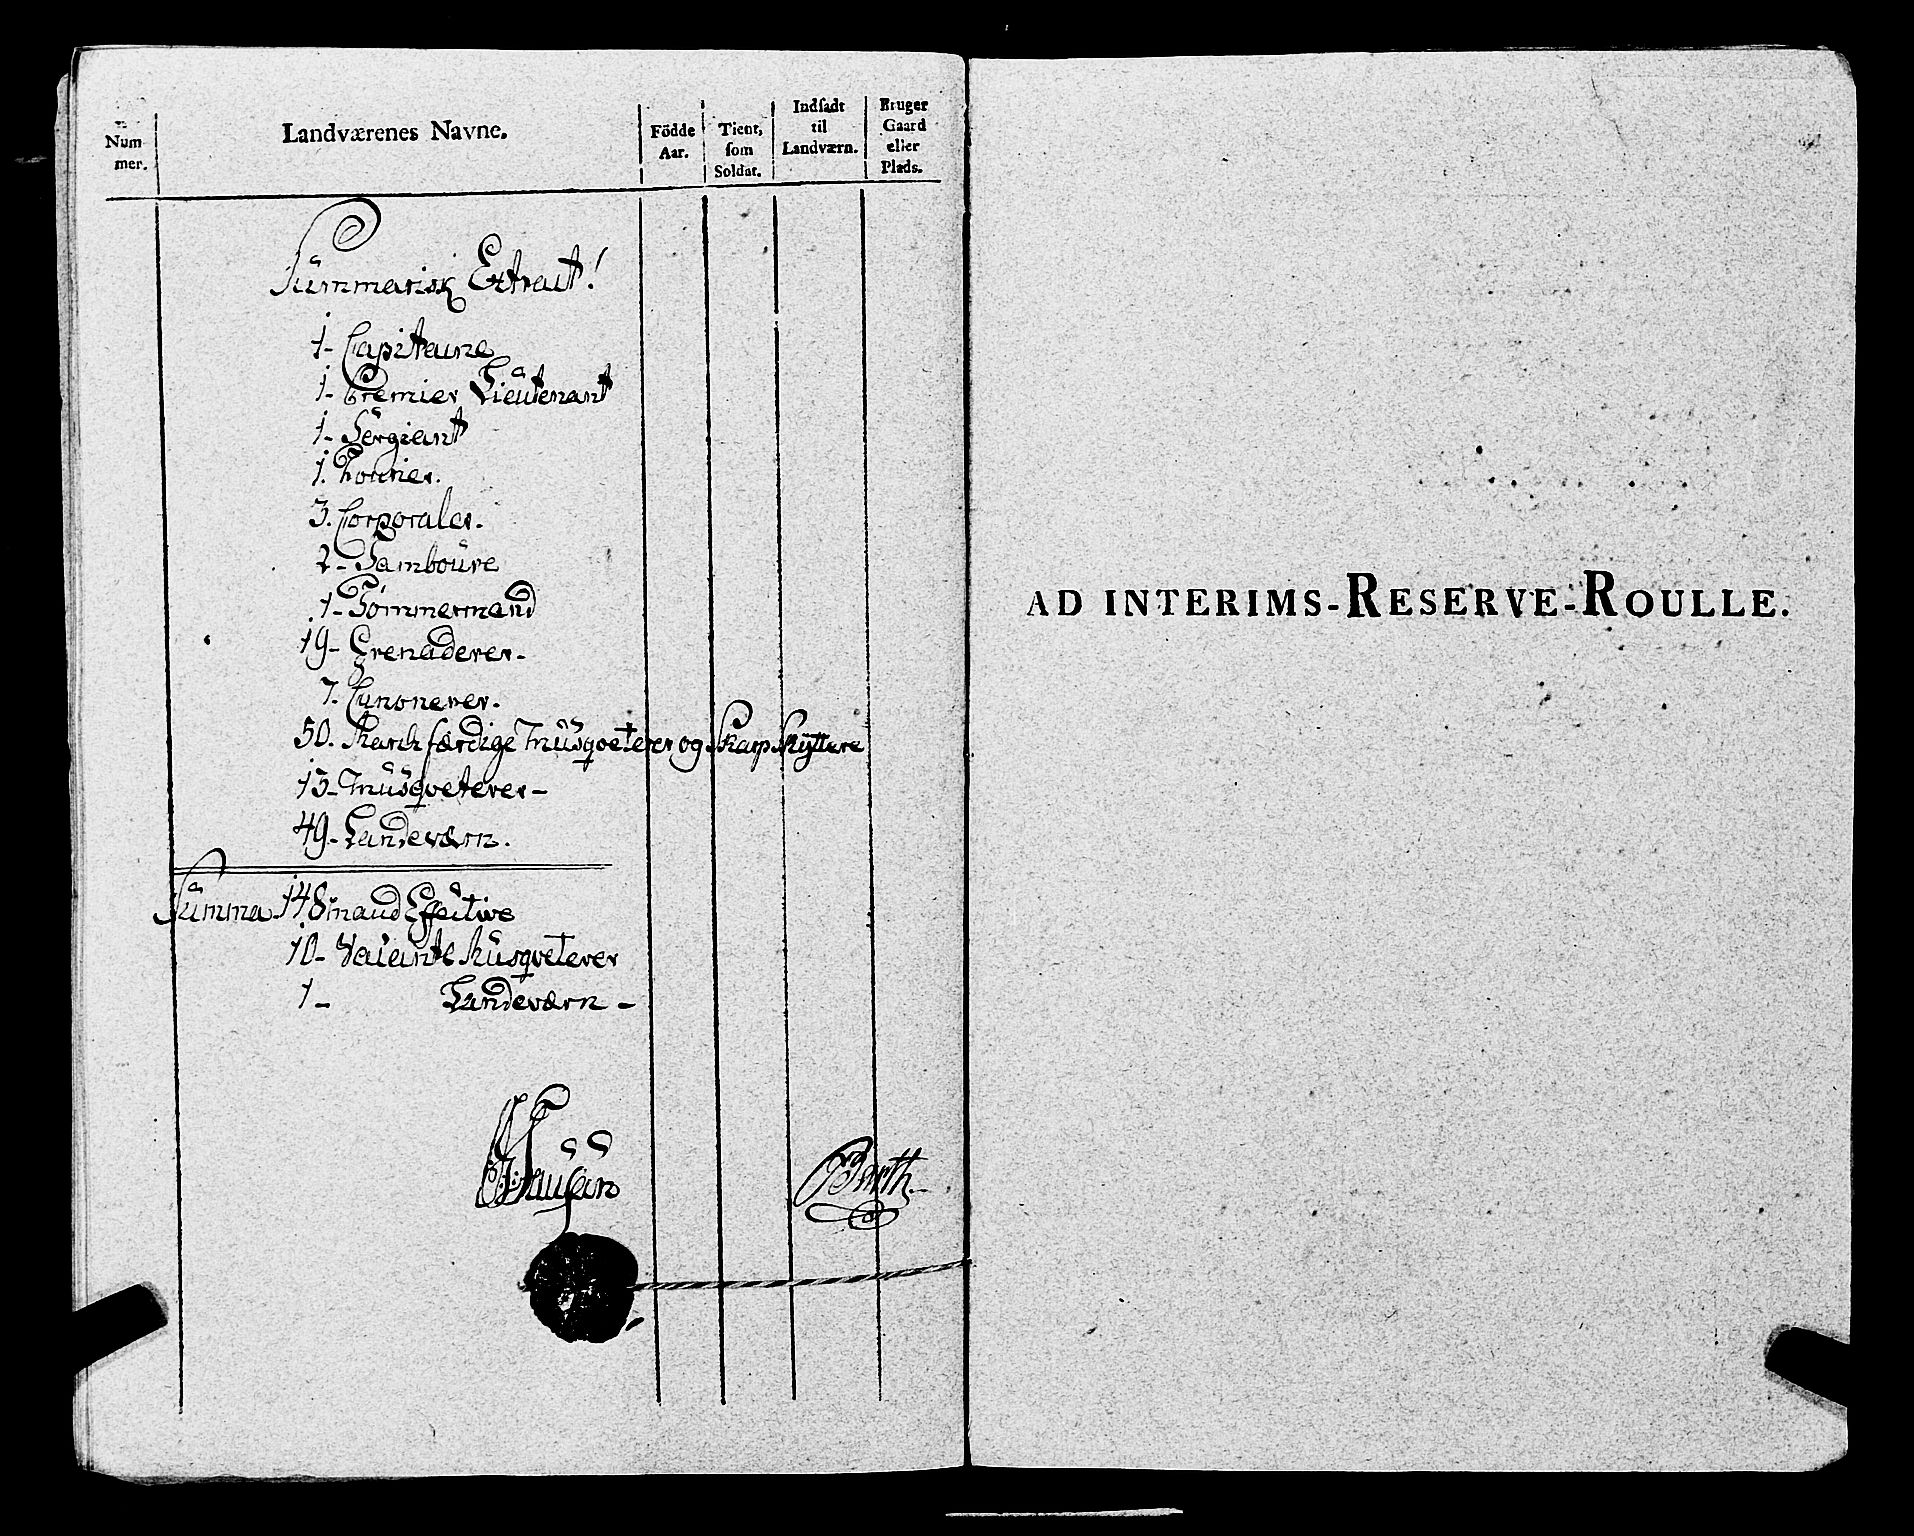 Num
mer.
Landværenes Navne.
Födde
Aar.
Tient,
som
Soldat.
Indsadt
til
Landværn.
Bruger
Gaard
eller
Plads.
Summarisk Extract!
1- Capitaine
1- Premier Lieutenant
1- Sergiant
1. Fourier.
3. Corporaler.
2- Tamboure
1- Tømmermand
19- Grenaderer-
7. Canonerer.
50. March færdige Musqveterer og Skarp Skyttere
13- Musqveterer-
49- Landeværn.
Summa 148 mand Effective
10- Vacante Musqveterer
1- Landeværn-
Barth
AD INTERIMS-RESERVE-ROULLE.